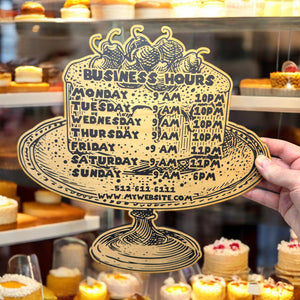 BUSINESS HOURS
MONDAY 9 AM 10PM
TUESDAY 9 AM 10PM
WEDNESDAY 9 AM 10PM
THURSDAY 9 AM 10PM
FRIDAY 9 AM 11PM
SATURDAY 9 AM 11PM
SUNDAY 9 AM 6PM
512 611 6111
WWW.MYWEBSITE.COM